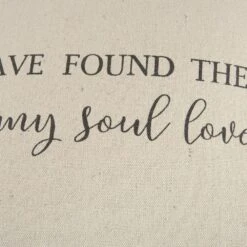 AVE FOUND THE
my soul love